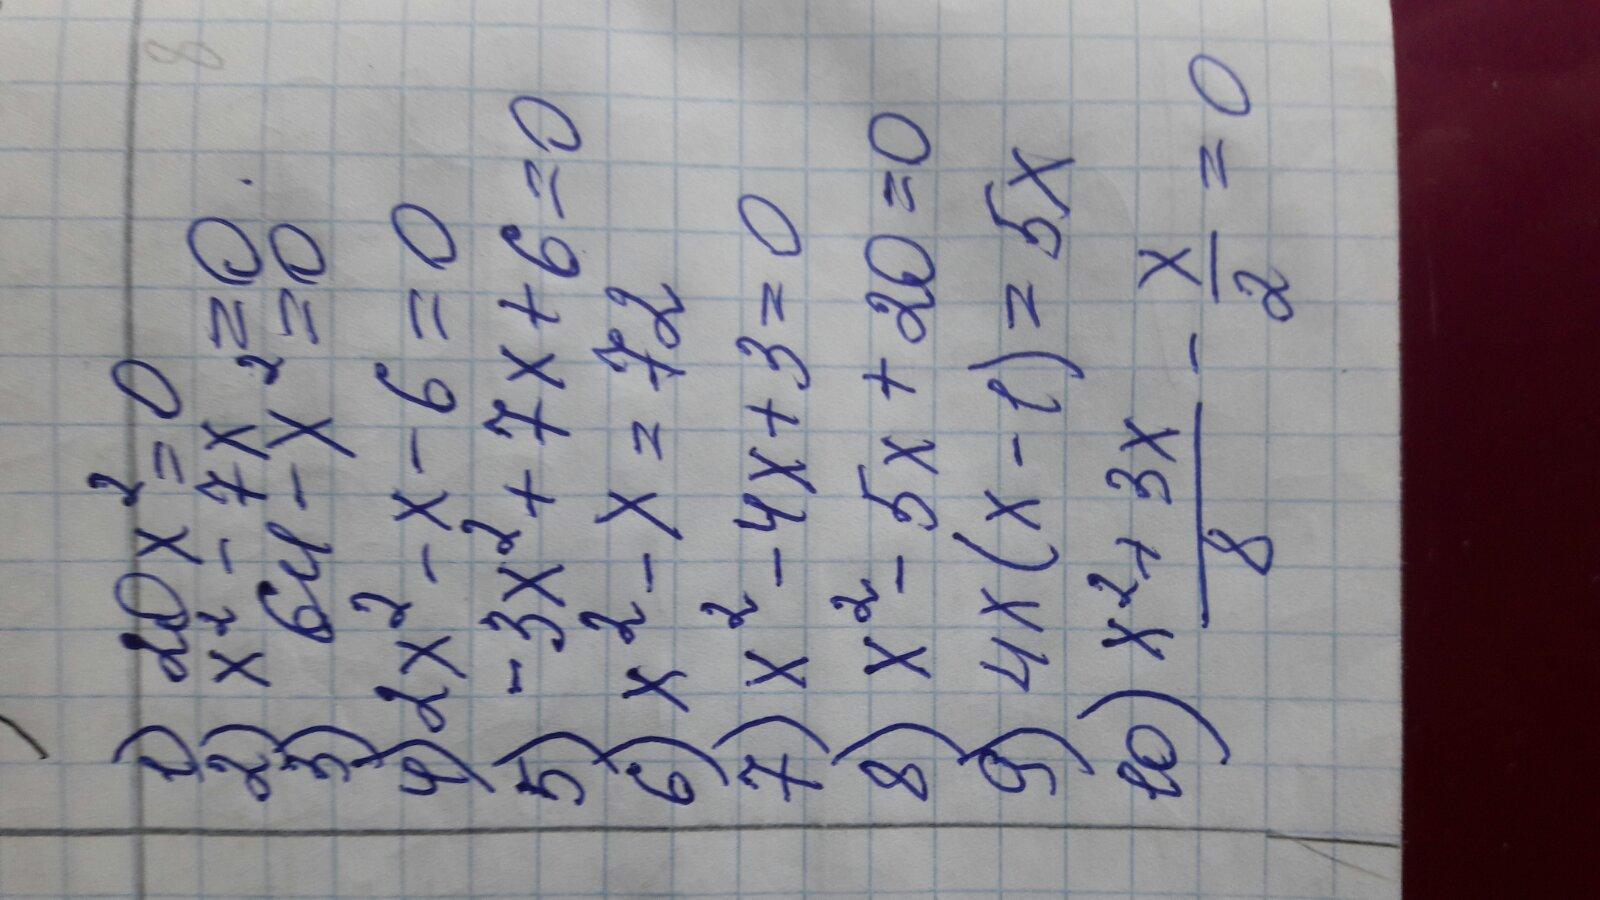 1) 20x² = 0
2) x² - 7x = 0
3) 64 - x² = 0
4) 2x² - x - 6 = 0
5) -3x² + 7x + 6 = 0
6) x² - x = 72
7) x² - 4x + 3 = 0
8) x² - 5x + 20 = 0
9) 4x(x - 1) = 5x
10) (x² + 3x)/8 - x/2 = 0